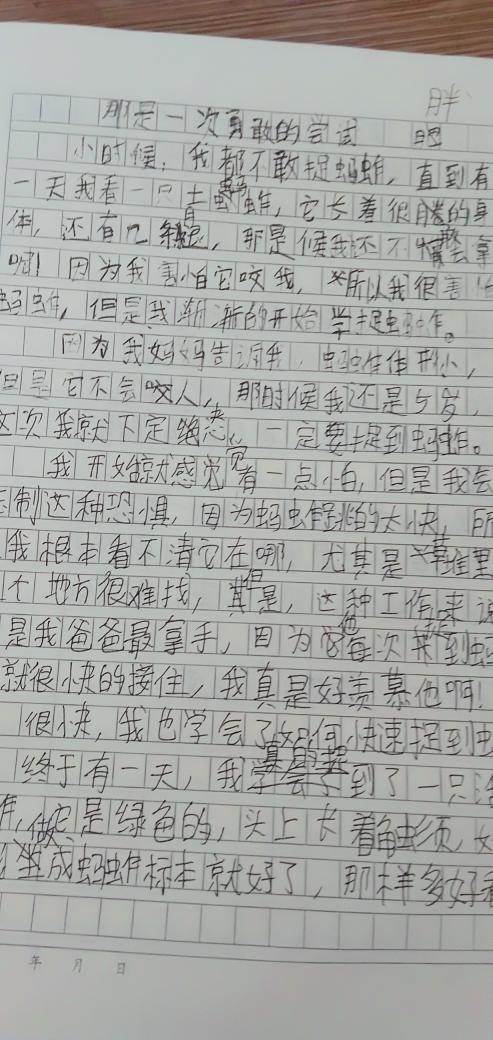 胖
那是一次勇敢的尝试 肥
小时候，我都不敢捉蚂蚱，直到有
一天我看一只土蚂蚱，它长着很胖的身
体，还有几条腿，那是候我还不敢拿
呢！因为我害怕它咬我，所以我很害怕
蚂蚱，但是我渐渐的开始学捉蚂蚱。
因为我妈妈告诉我，蚂蚱体形小，
但是它不会咬人，那时候我还是5岁，
这次我就下定决心，一定要捉到蚂蚱。
我开始就感觉有一点怕，但是我会
制这种恐惧，因为蚂蚱跳的太快，所
我根本看不清它在哪，尤其是草堆里
个地方很难找，但是，这种工作来说
是我爸爸最拿手，因为他每次找到蚂
就很快的接住，我真是好羡慕他啊！
很快，我也学会了如何快速捉到虫
终于有一天，我真的捉到了一只
它是绿色的，头上长着触须，
做成蚂蚱标本就好了，那样多好看
年 月 日